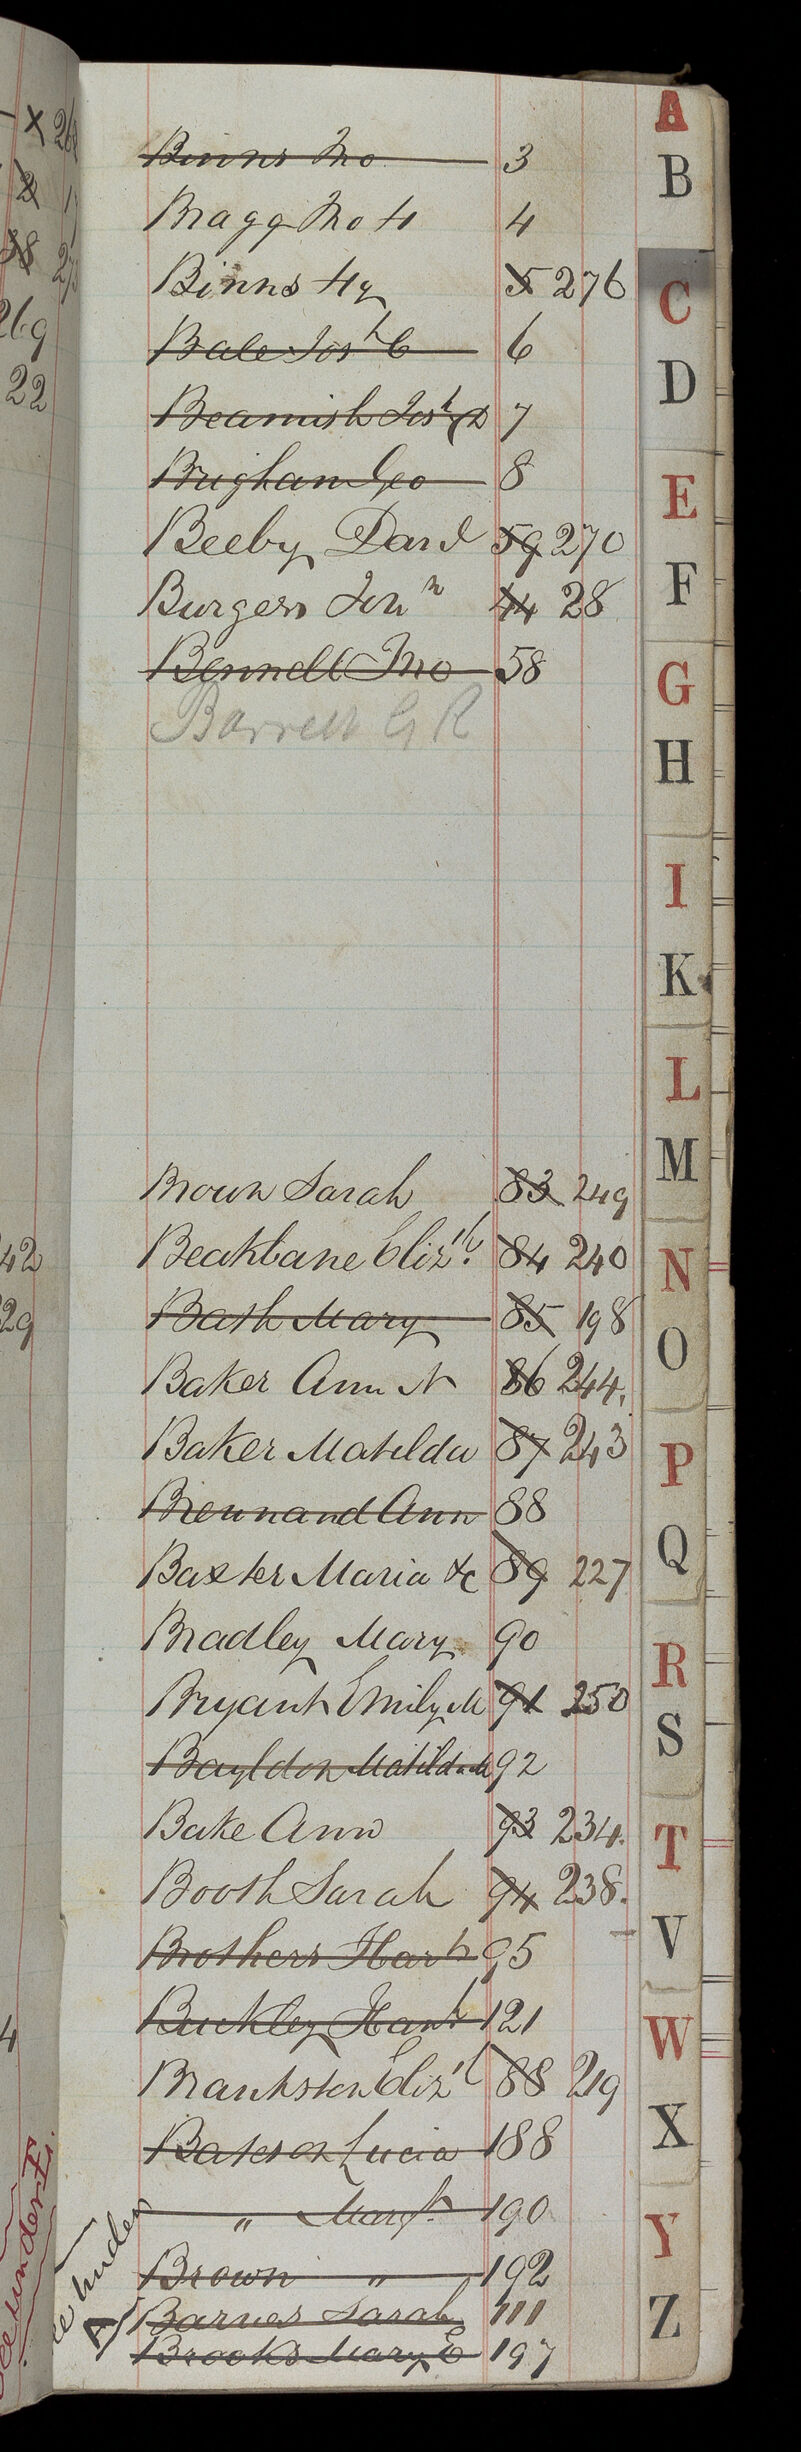 Binns Jno 3
Bragg Jno H 4
Binns Hy 5 276
Bale Josh C 6
Beamish Josh 7
Brigham Geo 8
Beeby Davd 59 270
Burgess Jonn 44 28
Bennett Jno 58
Barrett G R
Brown Sarah 83 249
Beakbane Elizth 84 240
Bash Mary 85 198
Baker Ann N 86 244.
Baker Matilda 87 243
Brennand Ann 88
Baxter Maria &c 89 227
Bradley Mary 90
Bryant Emily M 91 250
Bayldon Matilda M 92
Bake Ann 93 234.
Booth Sarah 94 238.
Brothers Hart 95
Buckley Hanh 121
Brankston Elizth 88 219
Bateson Lucia 188
" Margt 190
Brown " 192
Barnes Sarah 111
Brooks Mary E 197
A
B
C
D
E
F
G
H
I
K
L
M
N
O
P
Q
R
S
T
V
W
X
Y
Z
x
2
38
269
22
42
29
4
under E.
under